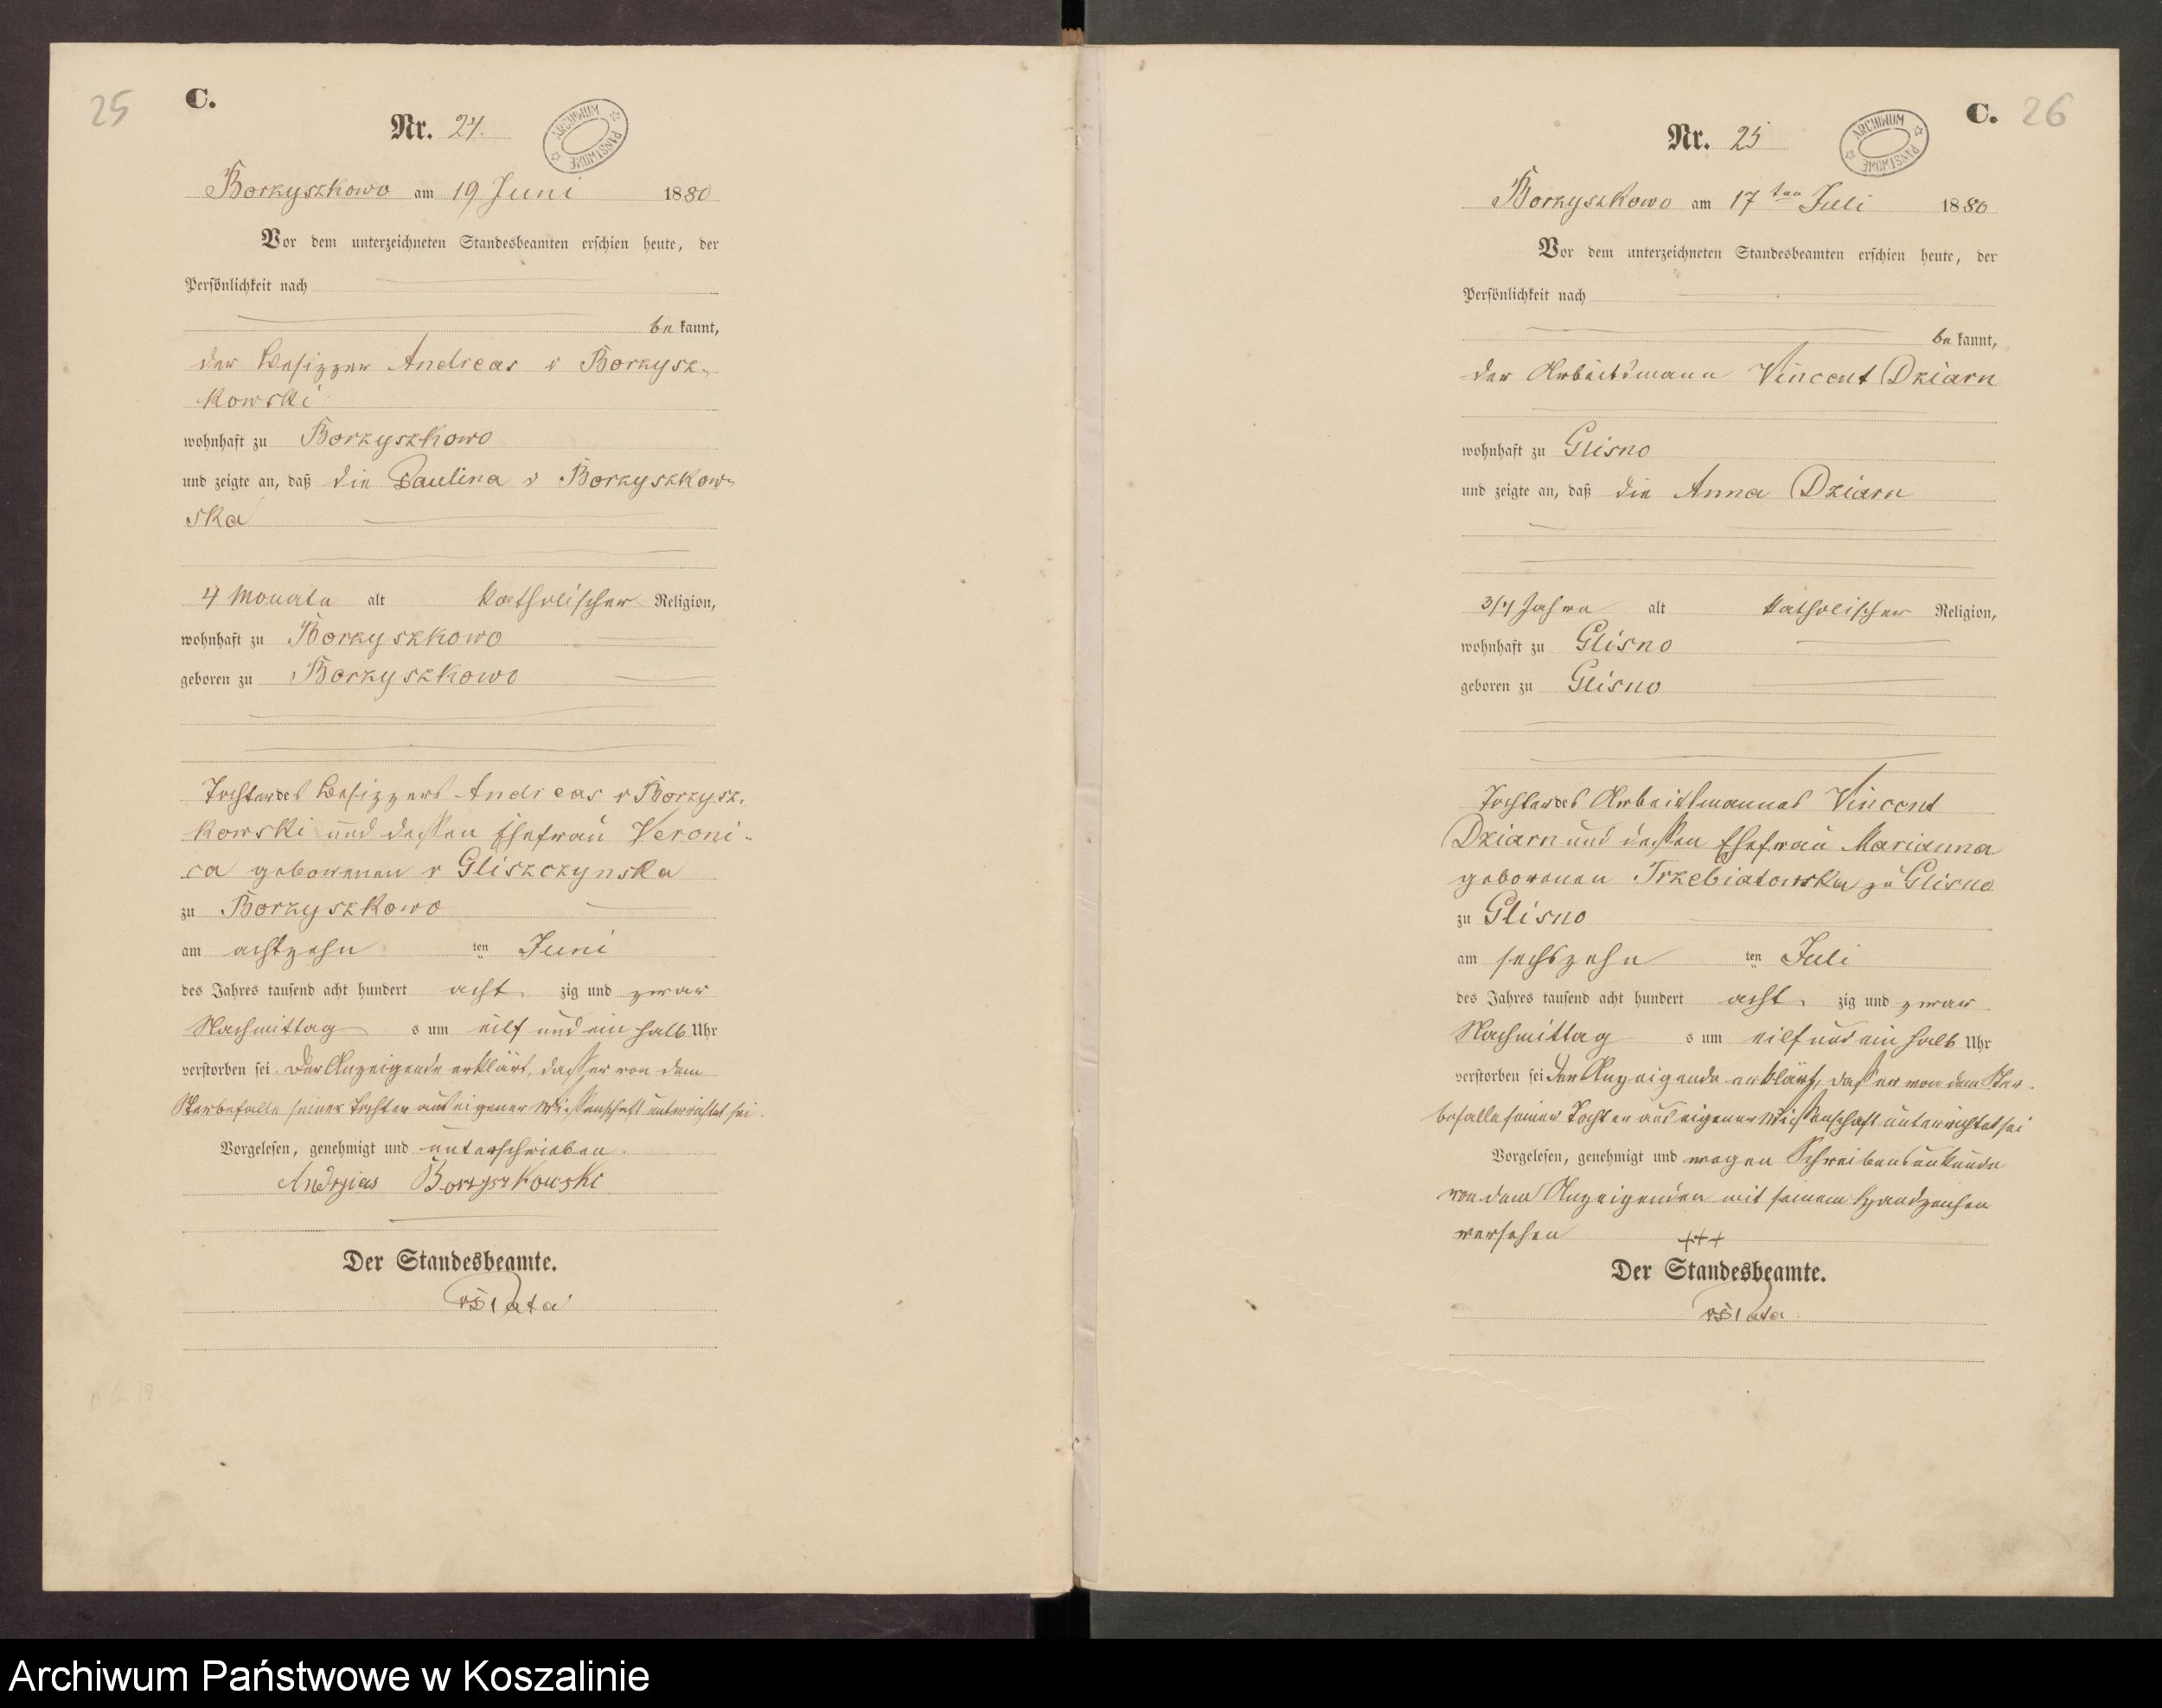 25
C.
Nr. 24.
ARCHIWUM PAŃSTWOWE
Borzyszkowo am 19 Juni 1880
Vor dem unterzeichneten Standesbeamten erschien heute, der
Persönlichkeit nach
be kannt,
der Besizzer Andreas v Borzysz-
kowski
wohnhaft zu Borzyszkowo
und zeigte an, daß die Paulina v Borzyszkow-
ska
4 Monate alt katholischer Religion,
wohnhaft zu Borzyszkowo
geboren zu Borzyszkowo
Tochter des Besizzers Andreas v Borzysz-
kowski und dessen Ehefrau Veroni-
ca geborenen v Gliszczynska
zu Borzyszkowo
am achtzehn ten Juni
des Jahres tausend acht hundert acht zig und zwar
Nachmittag s um eilf und ein halb Uhr
verstorben sei. Der Anzeigende erklärt, dass er von dem
Sterbefalle seiner Tochter aus eigener Wissenschaft unterrichtet sei.
Vorgelesen, genehmigt und unterschrieben.
Andrzias Borzyszkowski
Der Standesbeamte.
C. 26
Nr. 25
ARCHIWUM PAŃSTWOWE
Borzyszkowo am 17ten Juli 1880
Vor dem unterzeichneten Standesbeamten erschien heute, der
Persönlichkeit nach
be kannt,
der Arbeitsmann Vincent Dziarn
wohnhaft zu Glisno
und zeigte an, daß die Anna Dziarn
3/4 Jahre alt katholischer Religion,
wohnhaft zu Glisno
geboren zu Glisno
Tochter des Arbeitsmannes Vincent
Dziarn und dessen Ehefrau Marianna
geborenen Trzebiatowska zu Glisno
zu Glisno
am sechszehn ten Juli
des Jahres tausend acht hundert acht zig und zwar
Nachmittag s um eilf und ein halb Uhr
verstorben sei Der Anzeigende erklärt, dass er von dem Ster-
befalle seiner Tochter aus eigener Wissenschaft unterrichtet sei
Vorgelesen, genehmigt und wegen Schreibensunkunde
von dem Anzeigenden mit seinem Handzeichen
versehen +++
Der Standesbeamte.
Archiwum Państwowe w Koszalinie